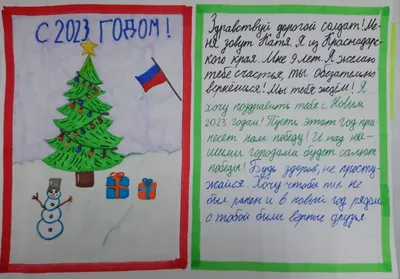 С 2023 ГОДОМ!
Здравствуй дорогой солдат! Ме-
ня зовут Катя. Я из Краснодарс-
кого края. Мне 9 лет. Я желаю
тебе счастья, ты обязательно
вернёшься! Мы тебя ждём! Я
хочу поздравить тебя с Новым
2023 годом! Пусть этот год при
несёт нам победу! И над на-
шими городами будет салют
победы! Будь здоров, не просту-
жайся. Хочу чтобы ты не
был ранен и в новый год рядом
с тобой были верные друзья.